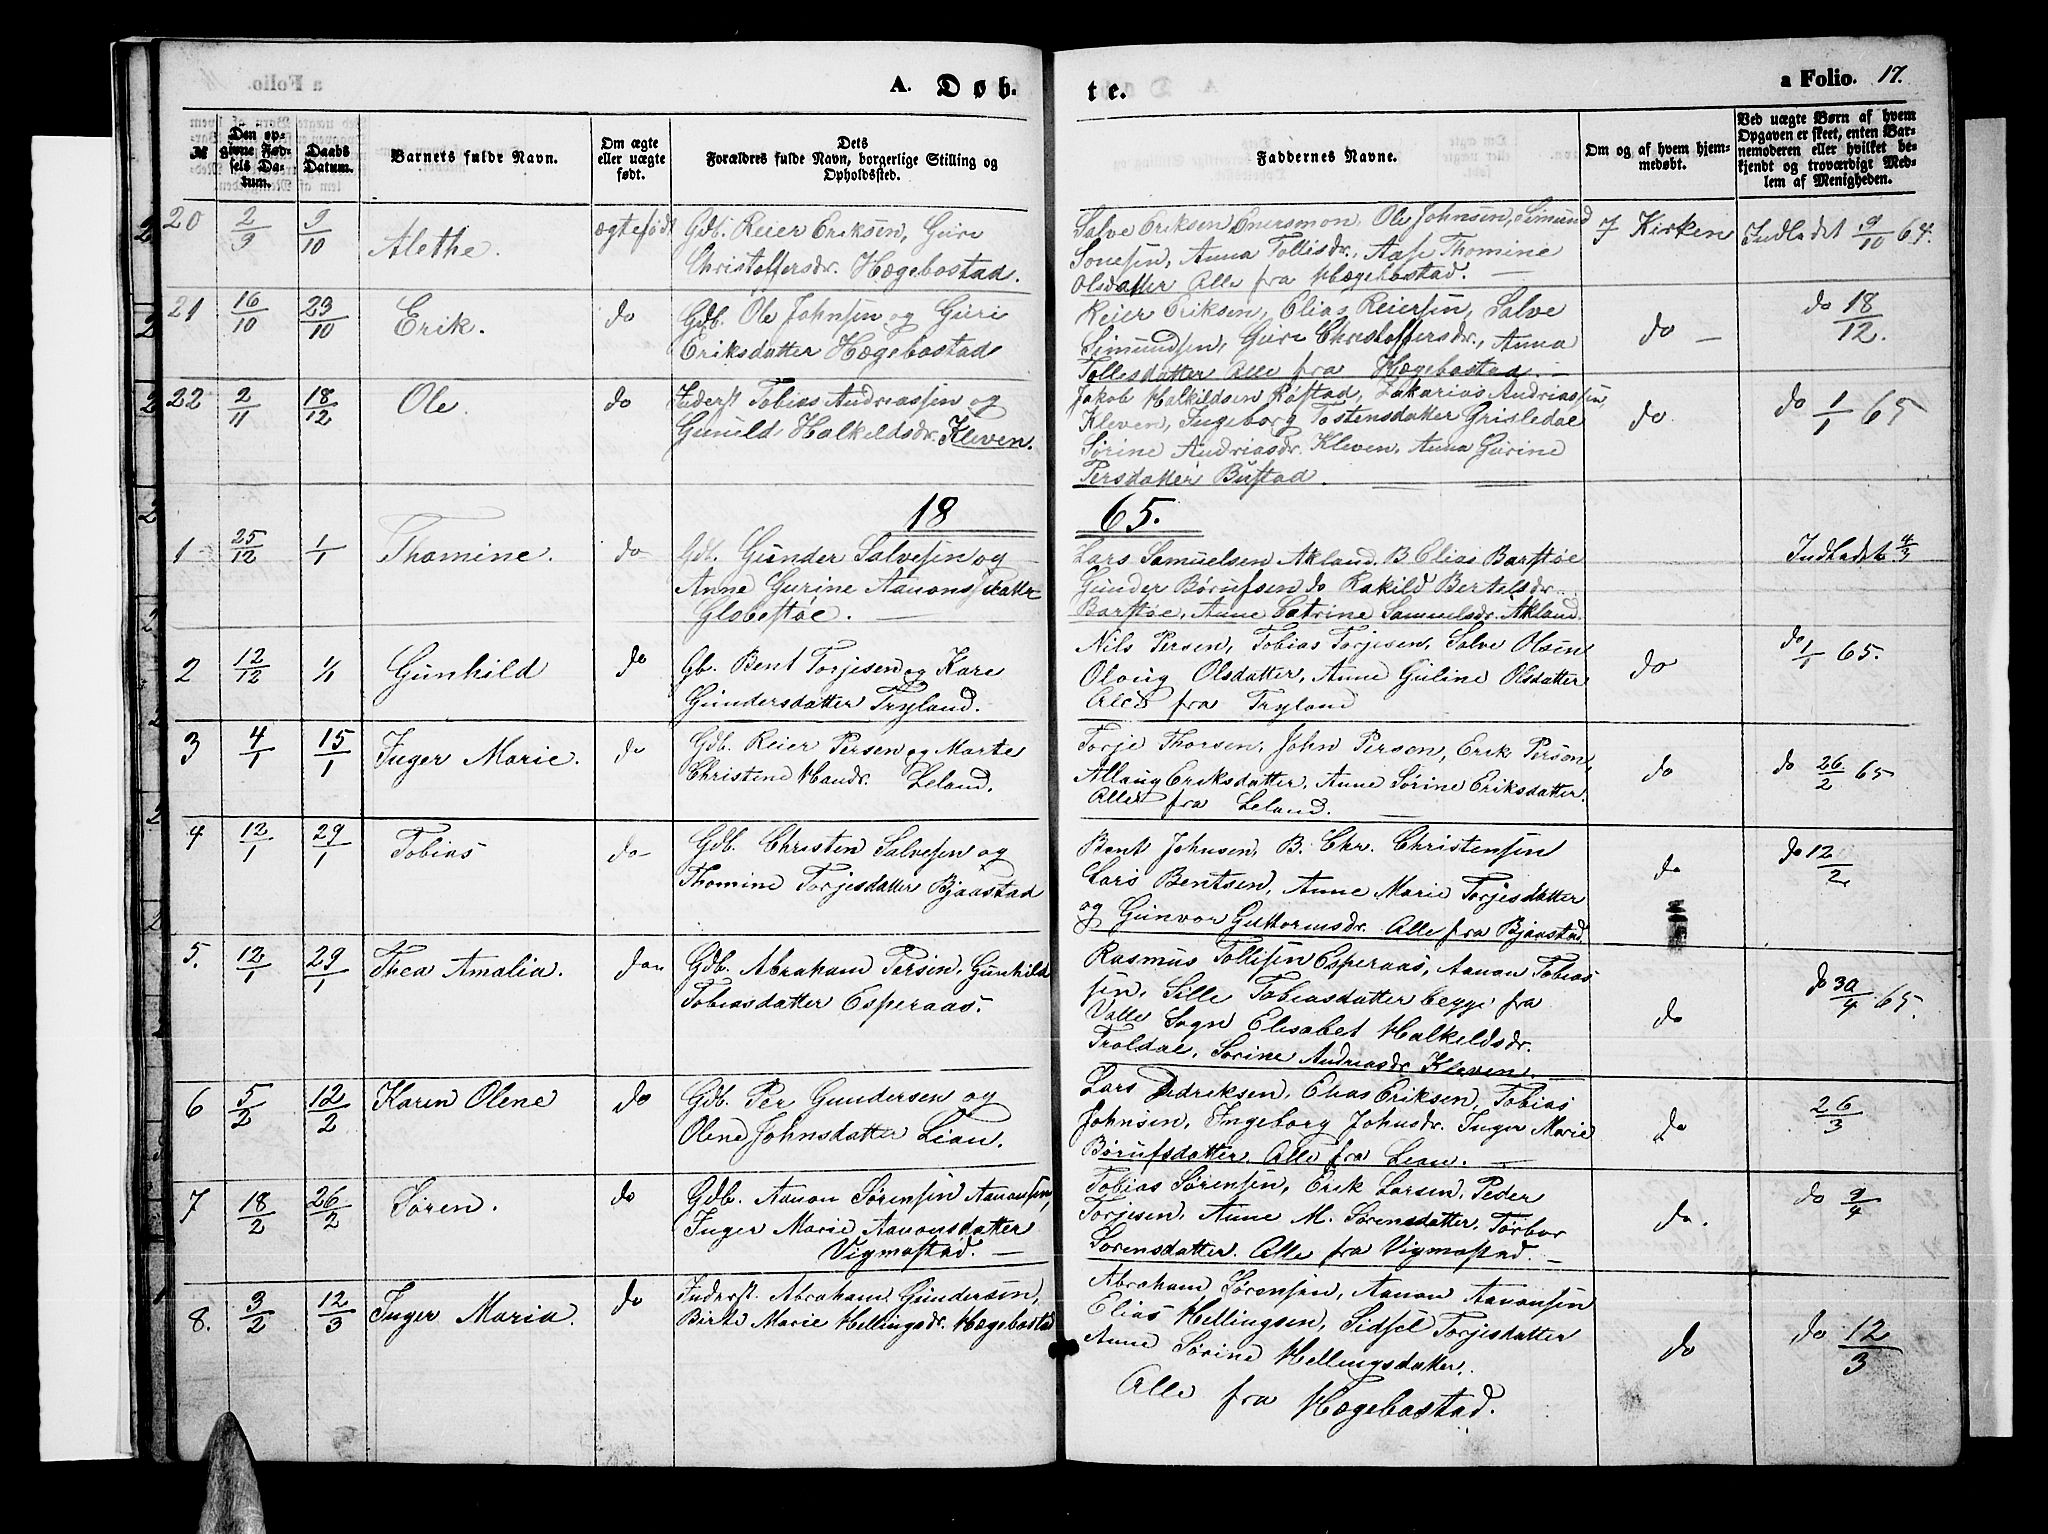 A. Døb-
te.
a Folio. 17.
№
Den op-
givne Fød-
sels Da-
tum.
Daabs
Datum.
Barnets fulde Navn.
Om ægte
eller uægte
født.
Dets
Forældres fulde Navn, borgerlige Stilling og
Opholdssted.
Faddernes Navne.
Om og af hvem hjem-
medøbt.
Ved uægte Børn af hvem
Opgaven er skeet, enten Bar-
nemoderen eller hvilket be-
kjendt og troværdigt Med-
lem af Menigheden.
20 2/9 9/10 Alethe. ægtefødt
Gdb. Reier Eriksen, Guri
Christoffersdr. Hægebostad.
Salve Eriksen Ole Johnsen, Simund
Sonesen, Anna Tollisdr., Aase Thomine
Olsdatter Alle fra Hægebostad.
I Kirken
Indladet 9/10 64.
21 16/10 23/10 Erik. do
Gdb. Ole Johnsen og Guri
Eriksdatter Hægebostad
Reier Eriksen, Elias Reiersen, Salve
Simundsen, Guri Christoffersdr., Anna
Tollesdatter Alle fra Hægebostad.
do
do 18/12.
22 2/11 18/12 Ole. do
Inderst Tobias Andriassen og
Gunild Halkildsdr. Kleven.
Jakob Halkildsen Røstad, Zakarias Andriassen,
Kleven, Ingeborg Tostensdatter Grisledal
Sørine Andriasdr. Kleven, Anna Gurine
Persdatter Bustad.
do.
do 1/1 65
1865.
1 25/12 1/1 Thomine. do
Gdb. Gunder Salvesen og
Anne Gurine Aanonsdatter
Globestøe.
Lars Samuelsen Akland. B Elias Barstøe
Gunder Børufsen do Rakild Bertelsdr.
Barstøe, Anne Catrine Samuelsdr. Akland.
Indladet 4/3
2 12/12 1/1 Gunhild do
Gb. Bent Torjesen og Kare
Gundersdatter Tryland.
Nils Persen, Tobias Torjesen, Salve Olsen
Olaug Olsdatter, Anne Guline Olsdatter
Alle fra Tryland
do
do 1/1 65.
3 4/1 15/1 Inger Marie. do
Gdb. Reier Persen og Marte
Christine Leland.
Torje Thorsen, John Person, Erik Person,
Allaug Eriksdatter, Anne Sørine Eriksdatter.
Alle fra Leland.
do
do 26/2 65
4 12/1 29/1 Tobias do
Gdb. Christen Salvesen og
Thomine Torjesdatter Bjaastad
Bent Johnsen, B. Chr. Christensen
Lars Bentsen, Anne Marie Torjesdatter
og Gunvor Guttormsdr. Alle fra Bjaastad.
do
do 12/2.
5. 12/1 29/1 Thea Amalia. do
Gdb. Abraham Persen, Gunhild
Tobiasdatter Esperaas.
Rasmus Tollisen Esperaas, Aanon Tobias-
sen, Sille Tobiasdatter begge fra
Valle Sogn Elisabet Halkeldsdr.
Troldal, Sorine Andriasdr. Kleven
do
do 30/4 65.
6 5/2 12/2 Karen Olene do
Gdb. Per Gundersen og
Olene Johnsdatter Lian.
Lars Didriksen, Elias Eriksen, Tobias
Johnsen, Ingeborg Johnsdr. Inger Marie
Børufsdatter. Alle fra Lian.
do
26/3
7 18/2 26/2 Søren. do
Gdb. Aanon Sørensen Aanonsen,
Inger Marie Aanonsdatter
Vigmostad.
Tobias Sørensen, Erik Larsen, Peder
Torjesen, Anne M. Sørensdatter, Torbor
Sørensdatter. Alle fra Vigmostad.
do.
do 9/4
8. 3/2 12/3 Inger Maria. do
Inderst. Abraham Gundersen,
Birte Marie Hellingsdr. Hægebostad
Abraham Sørensen, Aanon Aanonsen
Elias Hellingsen, Sidsel Torjesdatter
Anne Sørine Hellingsdatter.
Alle fra Hægebostad.
do
do 12/3